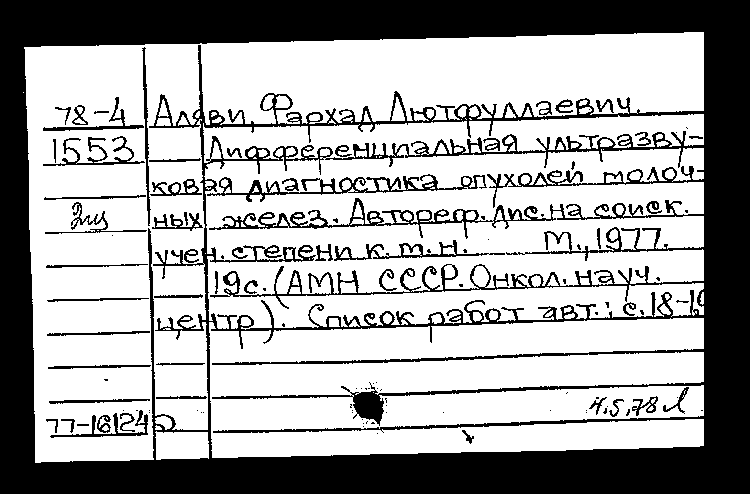 78-4 Аляви, Фархад Лютфуллаевич.
1553 Дифференциальная ультразву-
ковая диагностика опухолей молоч-
2 экз ных желез. Автореф. дис. на соиск.
учен. степени к.м.н. М., 1977.
19 с. (АМН СССР. Онкол. науч.
центр). Список работ авт.: с. 18-19
77-16124
4.5.78